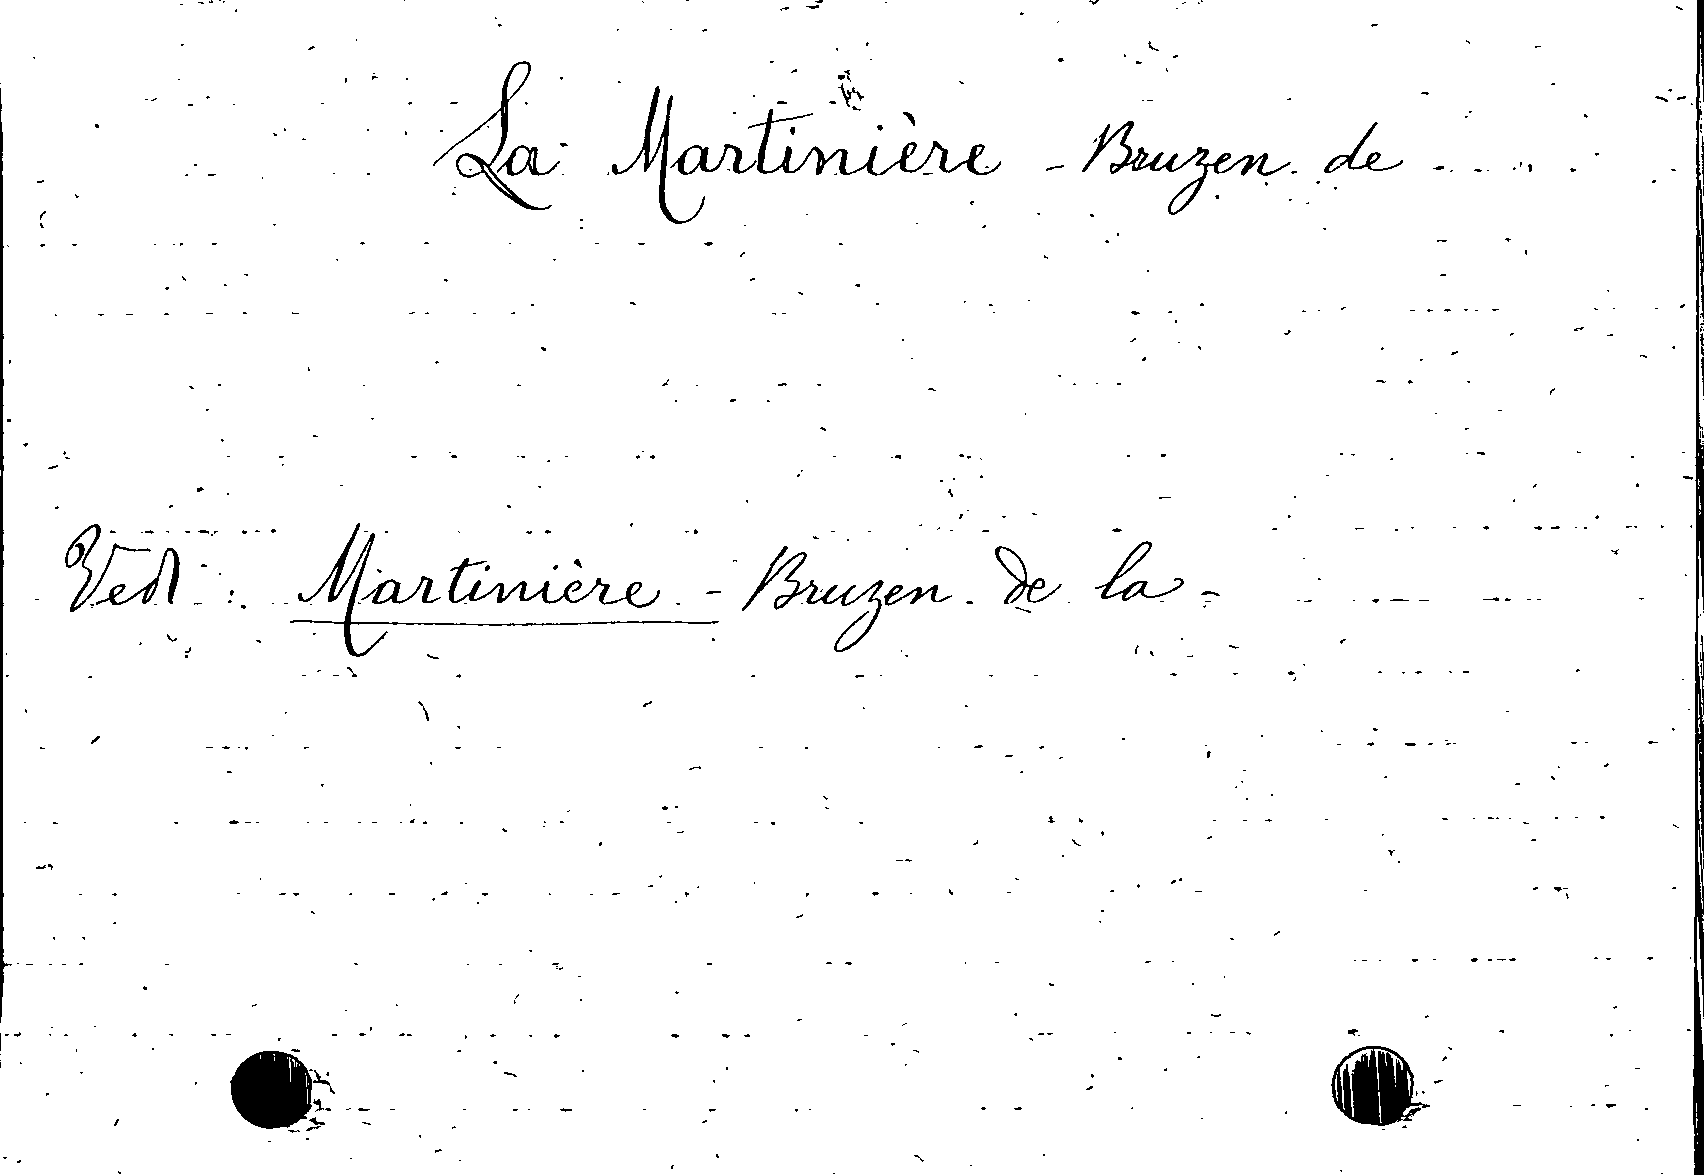 La Martinière - Bruzen de
Vedi: Martinière - Bruzen de la -